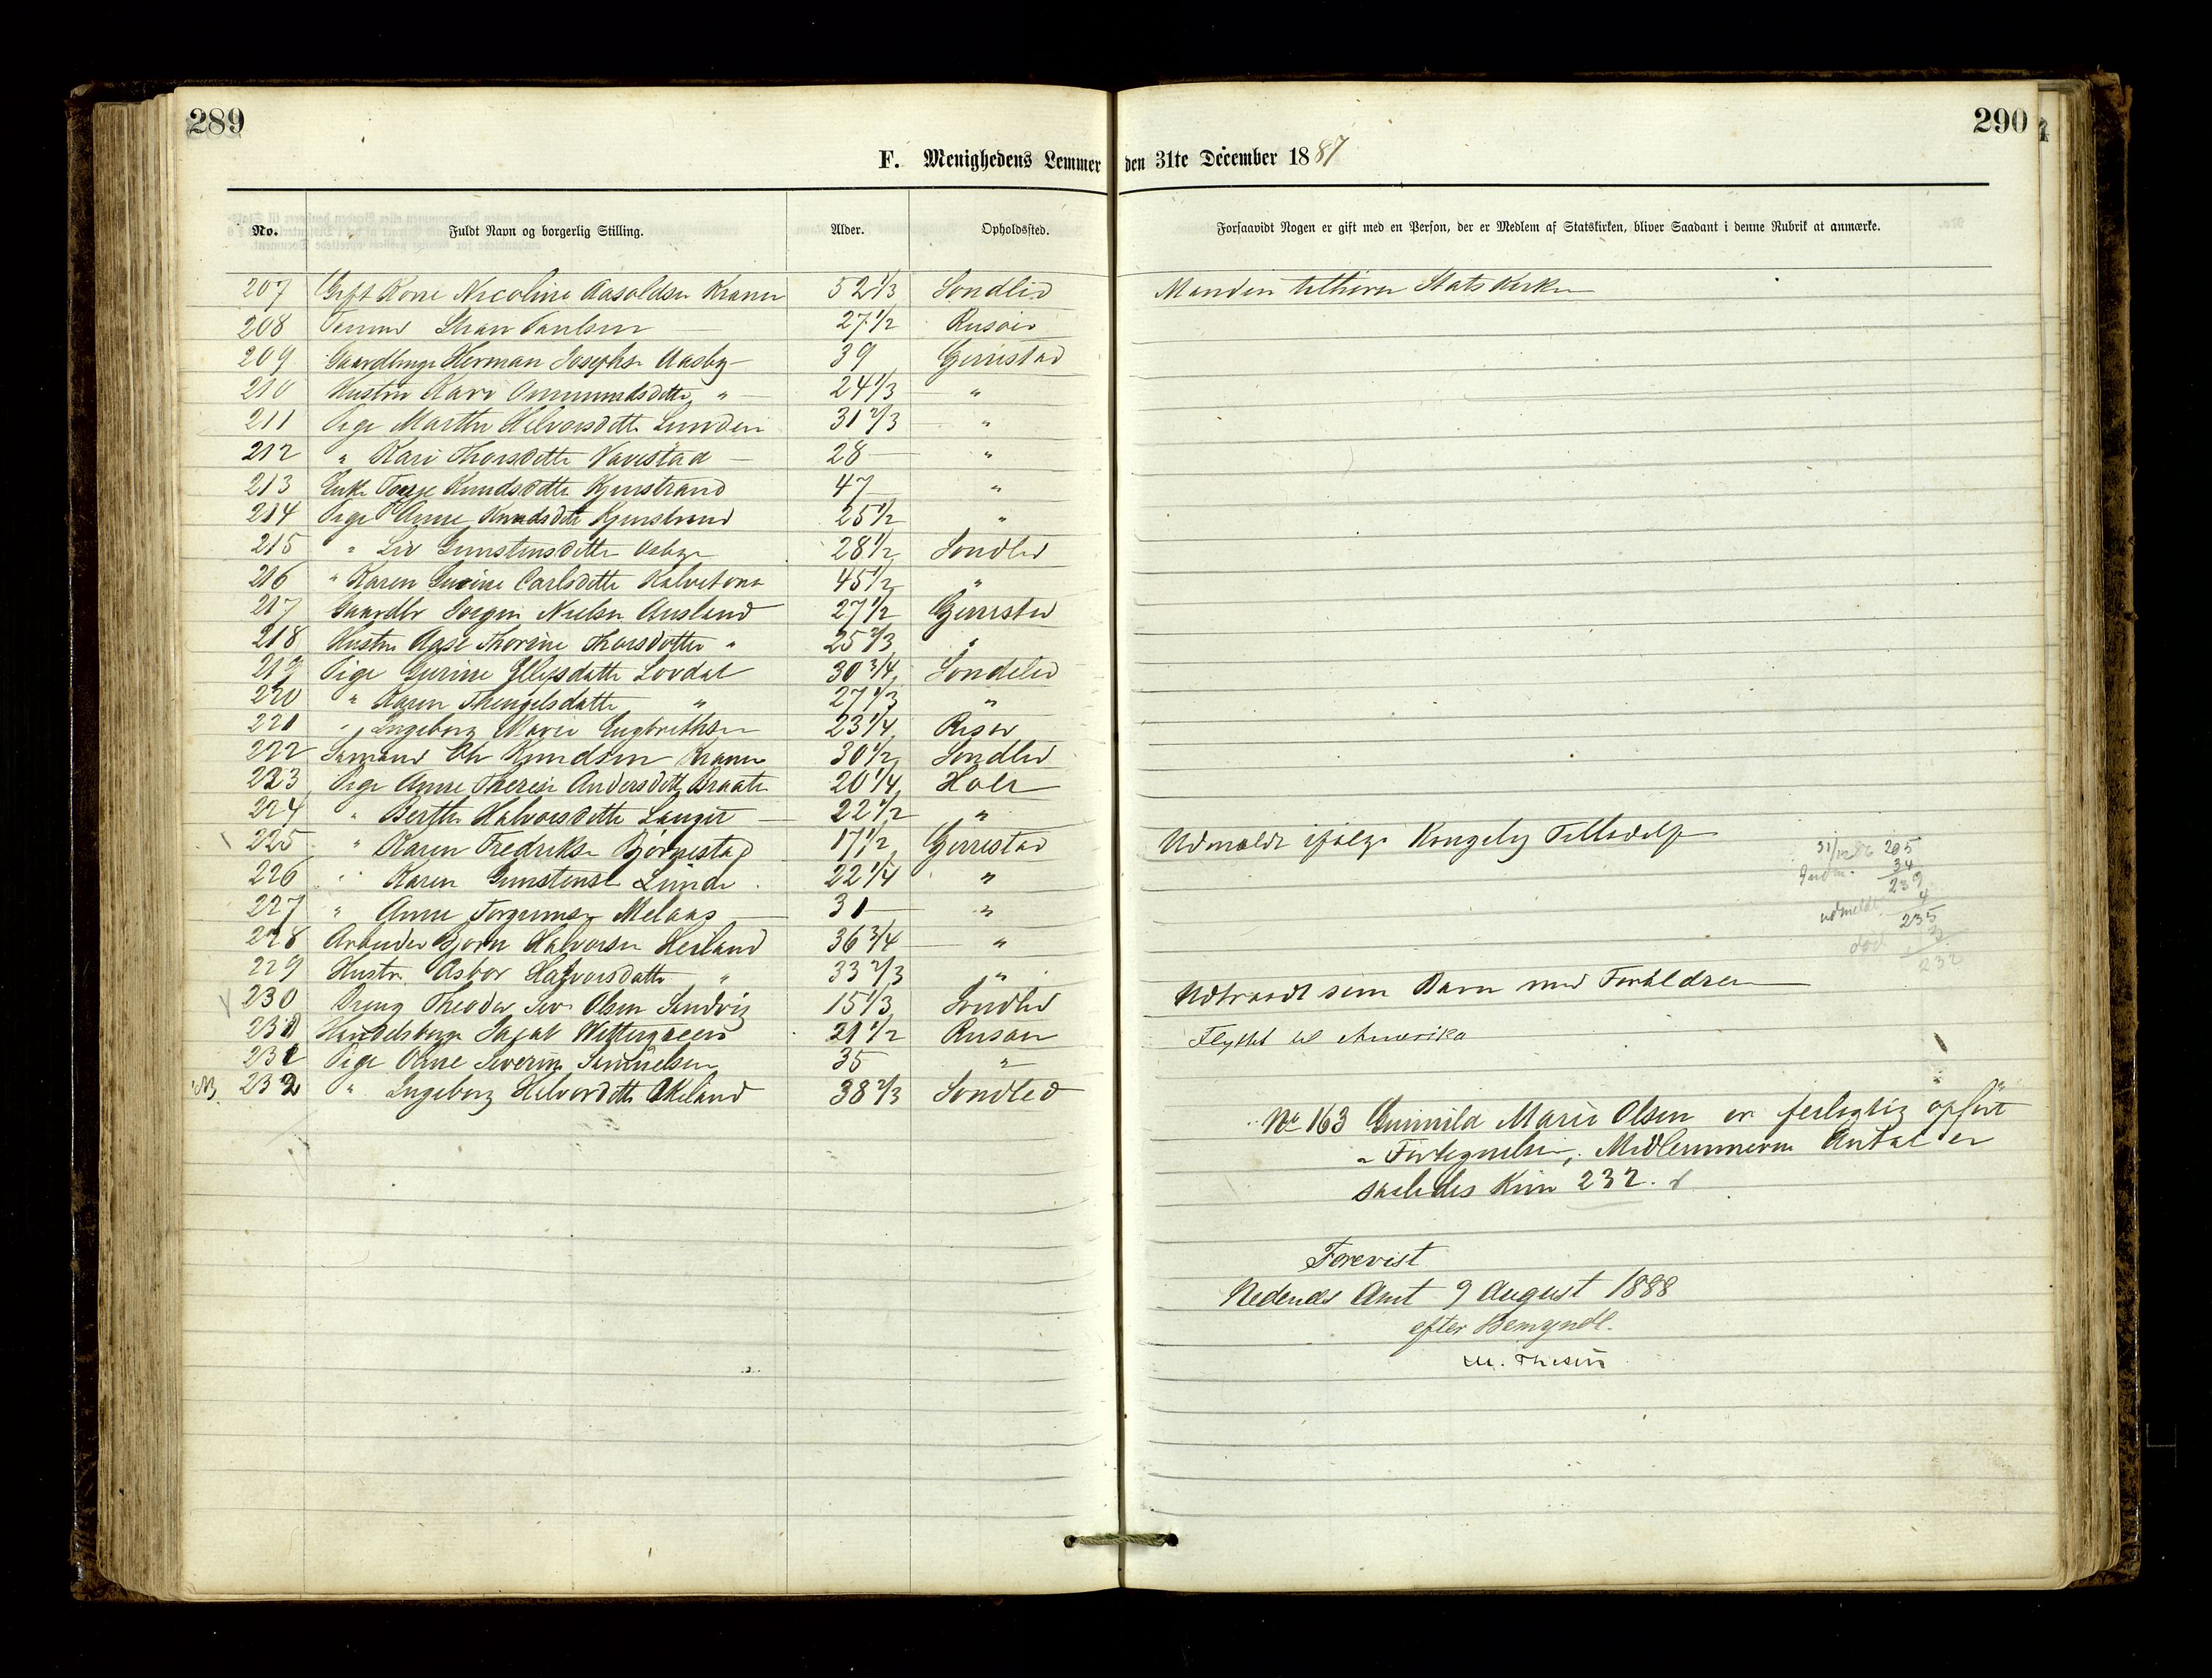 289
290
F. Menighedens Lemmer den 31te December 1887
No. Fuldt Navn og borgerlig Stilling. Alder. Opholdssted. Forsaavidt Nogen er gift med en Person, der er Medlem af Statskirken, bliver Saadant i denne Rubrik at anmærke.
207 Gift Kone Nicoline Aasoldsn Kranen 52 1/3 Sondled Manden tilhører Statskirken
208 Paulsen 27 1/2 Risøer
209 Gaardbruger Herman Josephs. Aasby 39 Gjerrestad
210 Hustru Kari Ommundsdatter " 24 1/3 "
211 Pige Marthe Helvorsdatte Lunden 31 2/3 "
212 " Kari Thorsdatte Vavestad 28 "
213 Enke Torje Knudsdatte Kjenstrand 47 "
214 Pige Anne Knudsdatte Kjenstrand 25 1/2 "
215 " Liv Gunstensdatte Osbye 28 1/2 Sondled
216 " Karen Gurine Carlsdatte 45 1/2 "
217 Gaardbr Jørgen Nielsen Ausland 27 1/2 Gjerrestad
218 Hustru Aase Thorine Thorsdatter " 25 2/3 "
219 Pige Gurine Ellefsdatte Lovdal 30 3/4 Sondeled
220 " Karen Thengelsdatte " 27 1/3 "
221 " Ingeborg Marie Engbrethsen 23 1/4 Risør
222 Sømand Ole Knudsen Kranen 30 1/2 Sondled
223 Pige Anne Therese Andersdatt Braate 20 1/4 Holt
224 " Berthe Halvorsdatte 22 1/2 "
225 " Karen Fredrikse Bjørnestad 17 1/2 Gjerrestad Udmeldt ifølge Kongelig Tilladelse
31/12 86 205
Indm. 34
239
226 " Karen Gunstense Linde 22 1/4 "
227 " Anne Torgrimse Melaas 31 "
udmeldt 4
235
228 Arbeider Bjorn Halvorsen Heiland 36 3/4 "
død 3
232
229 Hustr. Asbor Halvorsdatte " 33 2/3 "
230 Dreng Theodor Sev. Olsen Sandvig 15 1/3 Sondled Udtraadt som Barn med Forældren
231 Handelsborger Jacob Wettergreen 21 1/2 Risøer Flyttet til Amerika
232 Pige Oline Severine Samuelsen 35 "
NB. 232 " Ingeborg Helvordatte Økeland 38 2/3 Sondled
No 163 Gunnild Marie Olsen er feilagtig opført
i Fortegnelsen, Medlemmernes Antal er
saaledes kun 232.
Forevist
Nedenes Amt 9 August 1888
efter Bemyndl.
M. Thesen